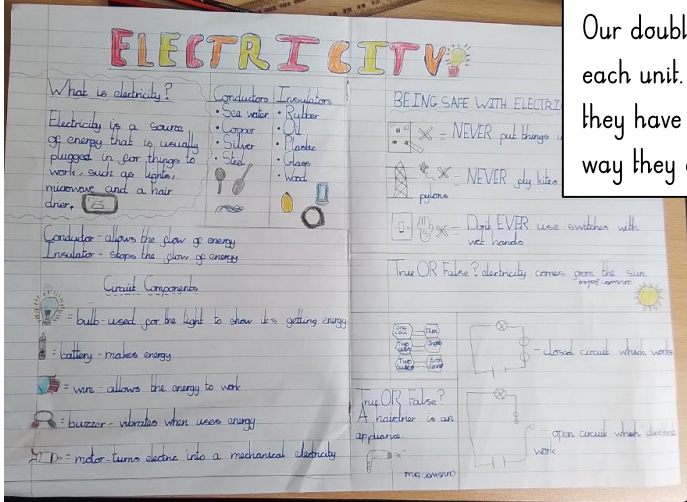 ELECTRICITY
What is electricity?
Electricity is a source
of energy that is usually
plugged in for things to
work, such as lights,
microwave and a hair
drier.
Conductors
• Sea water
• Copper
• Silver
• Steel
Insulators
• Rubber
• Oil
• Plastic
• Glass
• Wood
Conductor - allows the flow of energy
Insulator - stops the flow of energy
Circuit Components
= bulb - used for the light to show it's getting energy
= battery - makes energy
= wire - allows the energy to work
= buzzer - vibrates when uses energy
= motor - turns electric into a mechanical electricity
BEING SAFE WITH ELECTRI
= NEVER put things
= NEVER fly kites
pylons
= Dont EVER use switches with
wet hands
True OR False? electricity comes from the sun
answer: false
- closed circuit which works
True OR False?
A hairdrier is an
appliance
answer: true
- open circuit which
work
Our doubl
each unit.
they have
way they